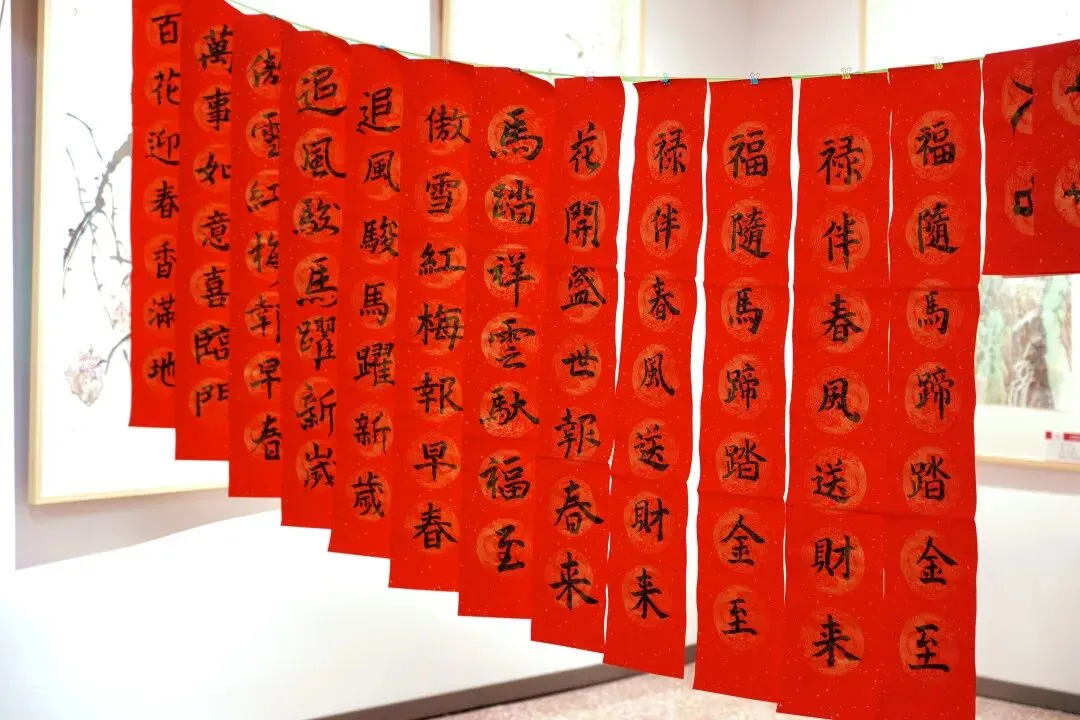 百花迎春香滿地
萬事如意喜臨門
傲雪紅梅報早春
追風駿馬躍新歲
追風駿馬躍新歲
傲雪紅梅報早春
馬踏祥雲馱福至
花開盛世報春来
禄伴春風送財来
福隨馬蹄踏金至
禄伴春風送財来
福隨馬蹄踏金至